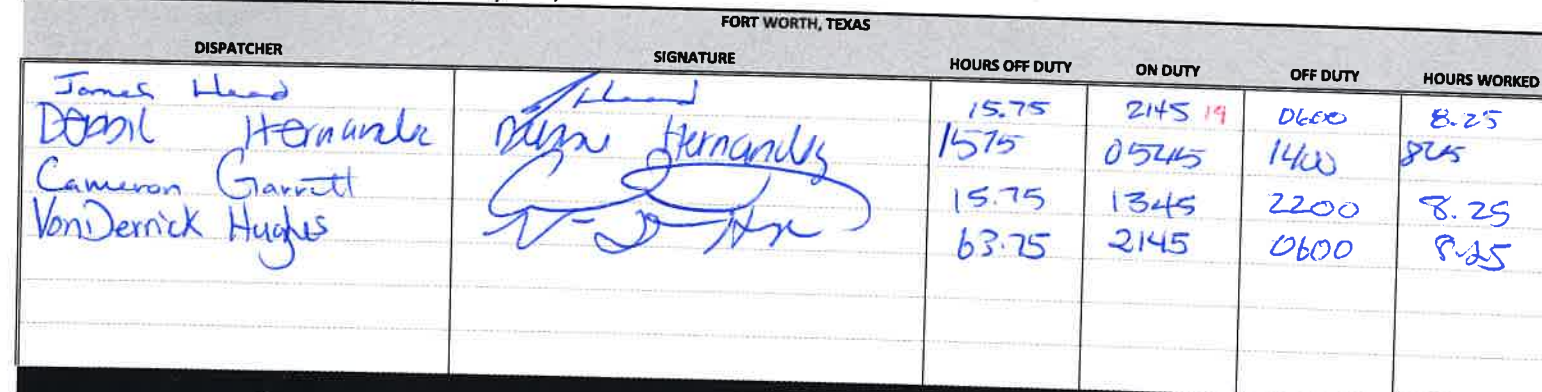 FORT WORTH, TEXAS
DISPATCHER SIGNATURE HOURS OFF DUTY ON DUTY OFF DUTY HOURS WORKED
James Head Head 15.75 2145 19 0600 8.25
Hernandez Hernandez 1575 0545 1400 825
Cameron Garrett 15.75 1345 2200 8.25
VonDerrick Hughes 63.75 2145 0600 8.25